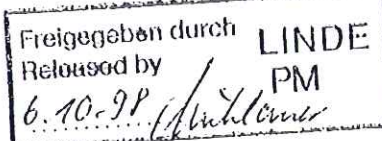 Freigegeben durch LINDE
Released by PM
6.10.98